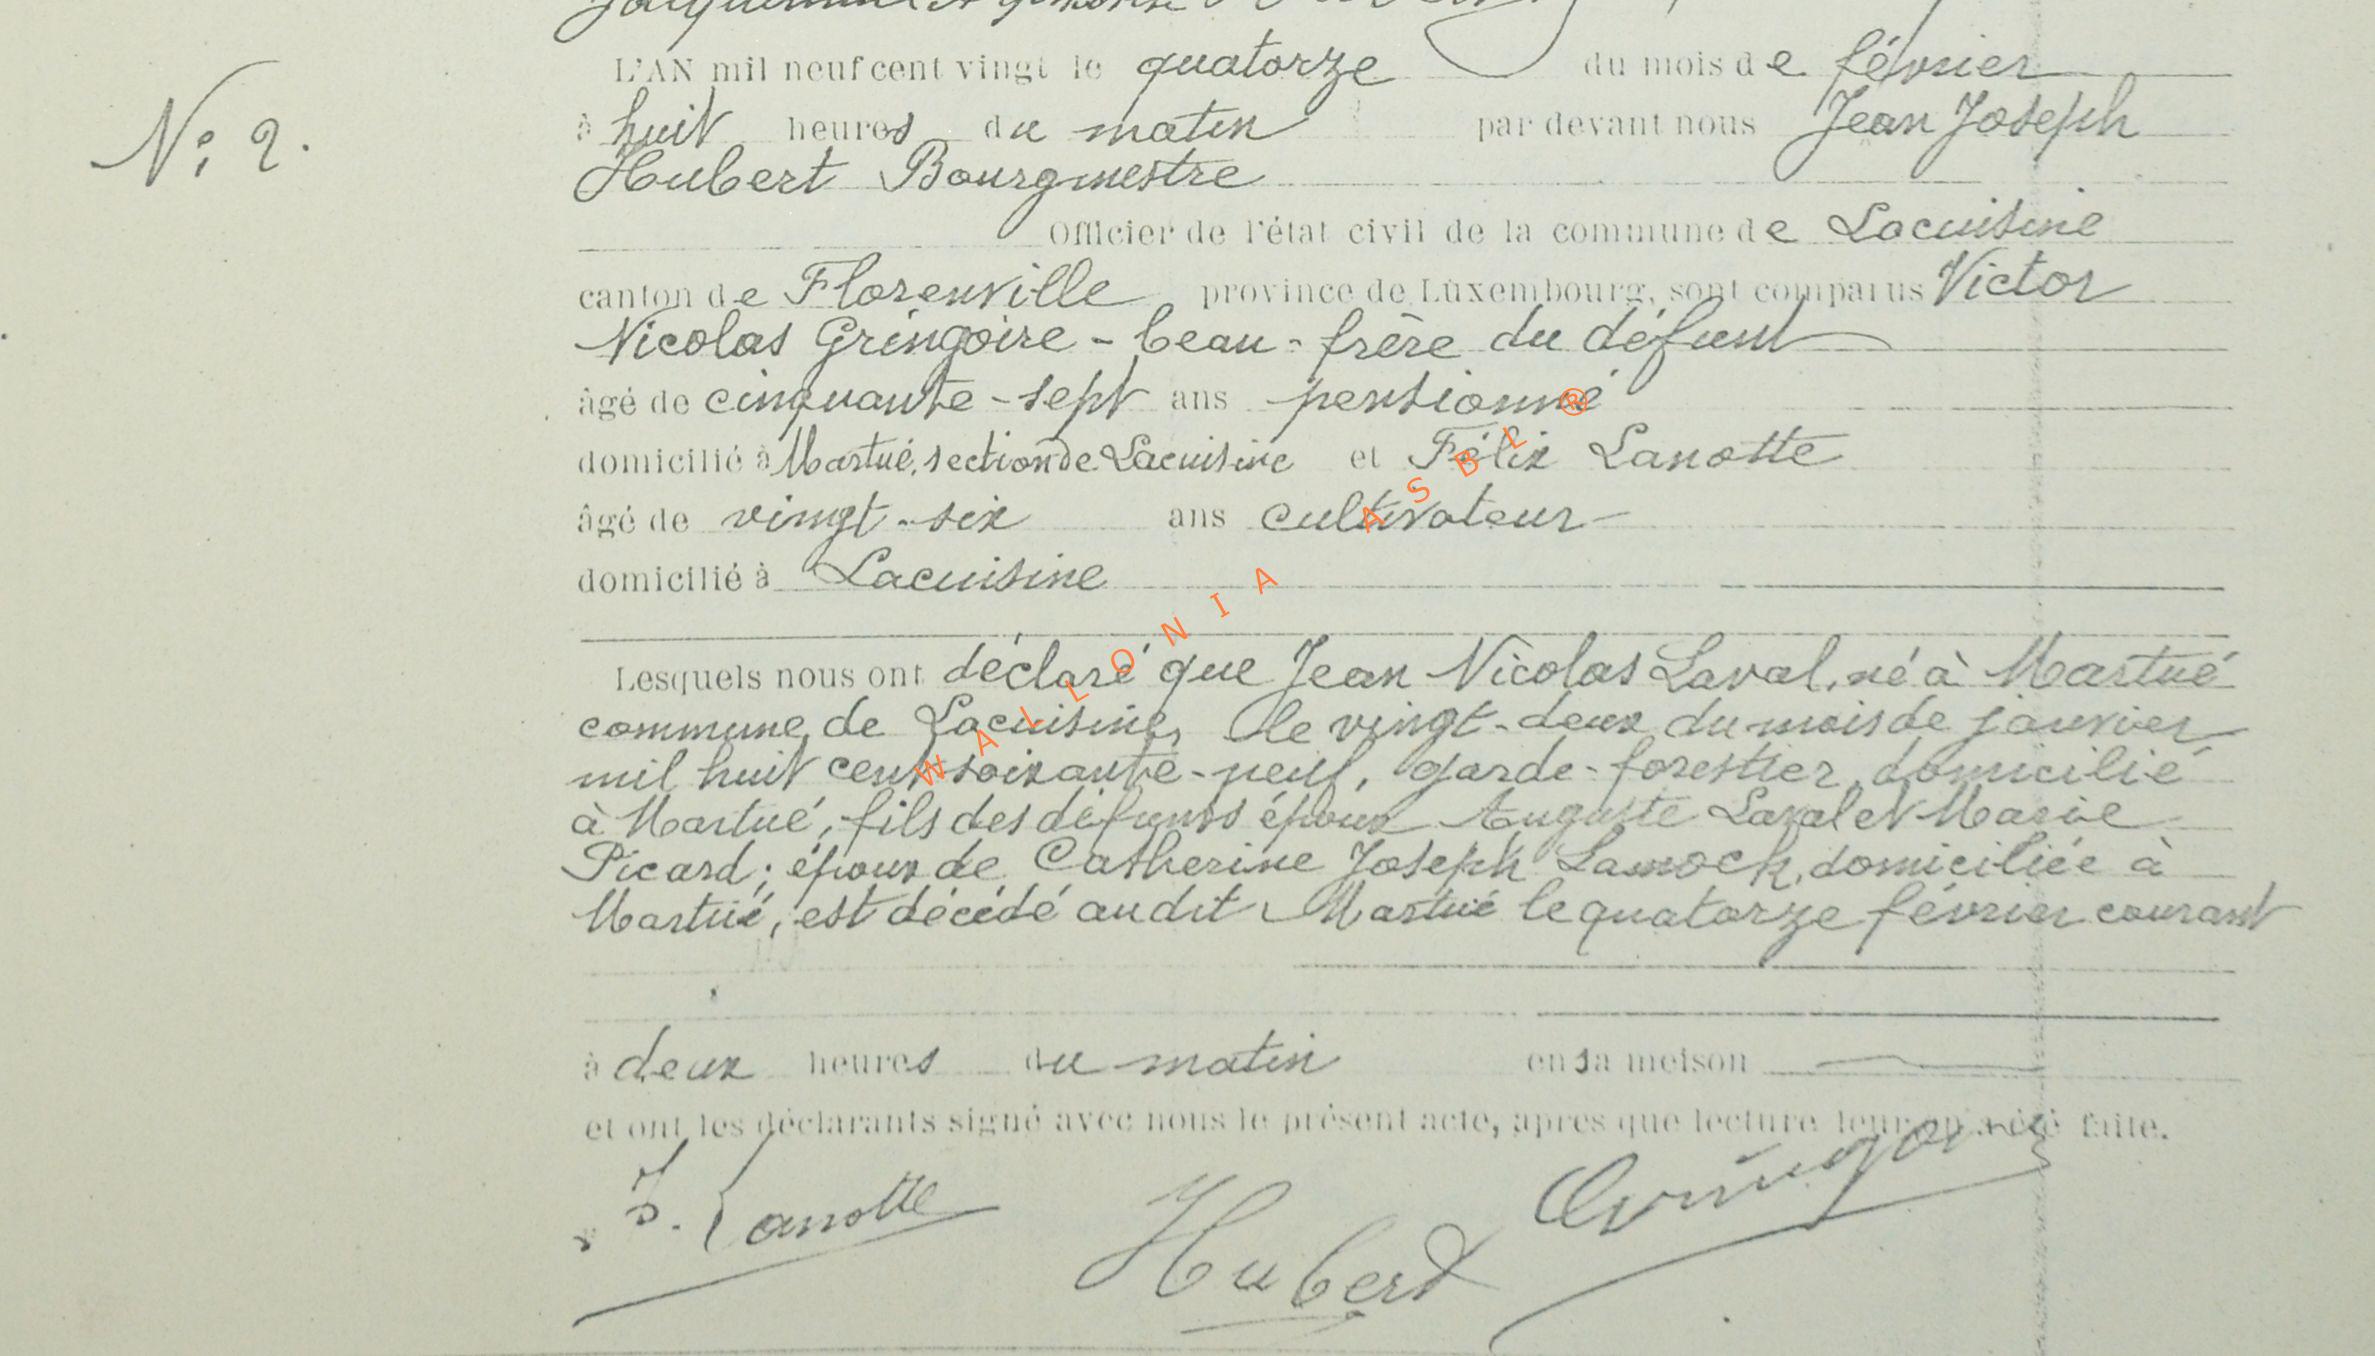 L'AN mil neuf cent vingt le quatorze du mois de février
N° 2.
à huit heures du matin par devant nous Jean Joseph
Hubert Bourgmestre
Officier de l'état civil de la commune de Lacuisine
canton de Florenville, province de Luxembourg, sont comparus Victor
Nicolas Gringoire - beau-frère du défunt
âgé de cinquante-sept ans pensionné
domicilié à Martué, section de Lacuisine et Félix Lanotte
âgé de vingt-six ans cultivateur
domicilié à Lacuisine
Lesquels nous ont déclaré que Jean Nicolas Laval, né à Martué
commune de Lacuisine, le vingt-deux du mois de janvier
mil huit cent soixante-neuf, garde-forestier, domicilié
à Martué, fils des défunts époux Auguste Laval et Marie
Picard; époux de Catherine Joseph domiciliée à
Martué, est décédé audit Martué le quatorze février courant
à deux heures du matin en sa meison
et ont les déclarants signé avec nous le présent acte, après que lecture leur en a été faite.
F. Lanotte Hubert Gringoire
WALLONIA ASBL ®